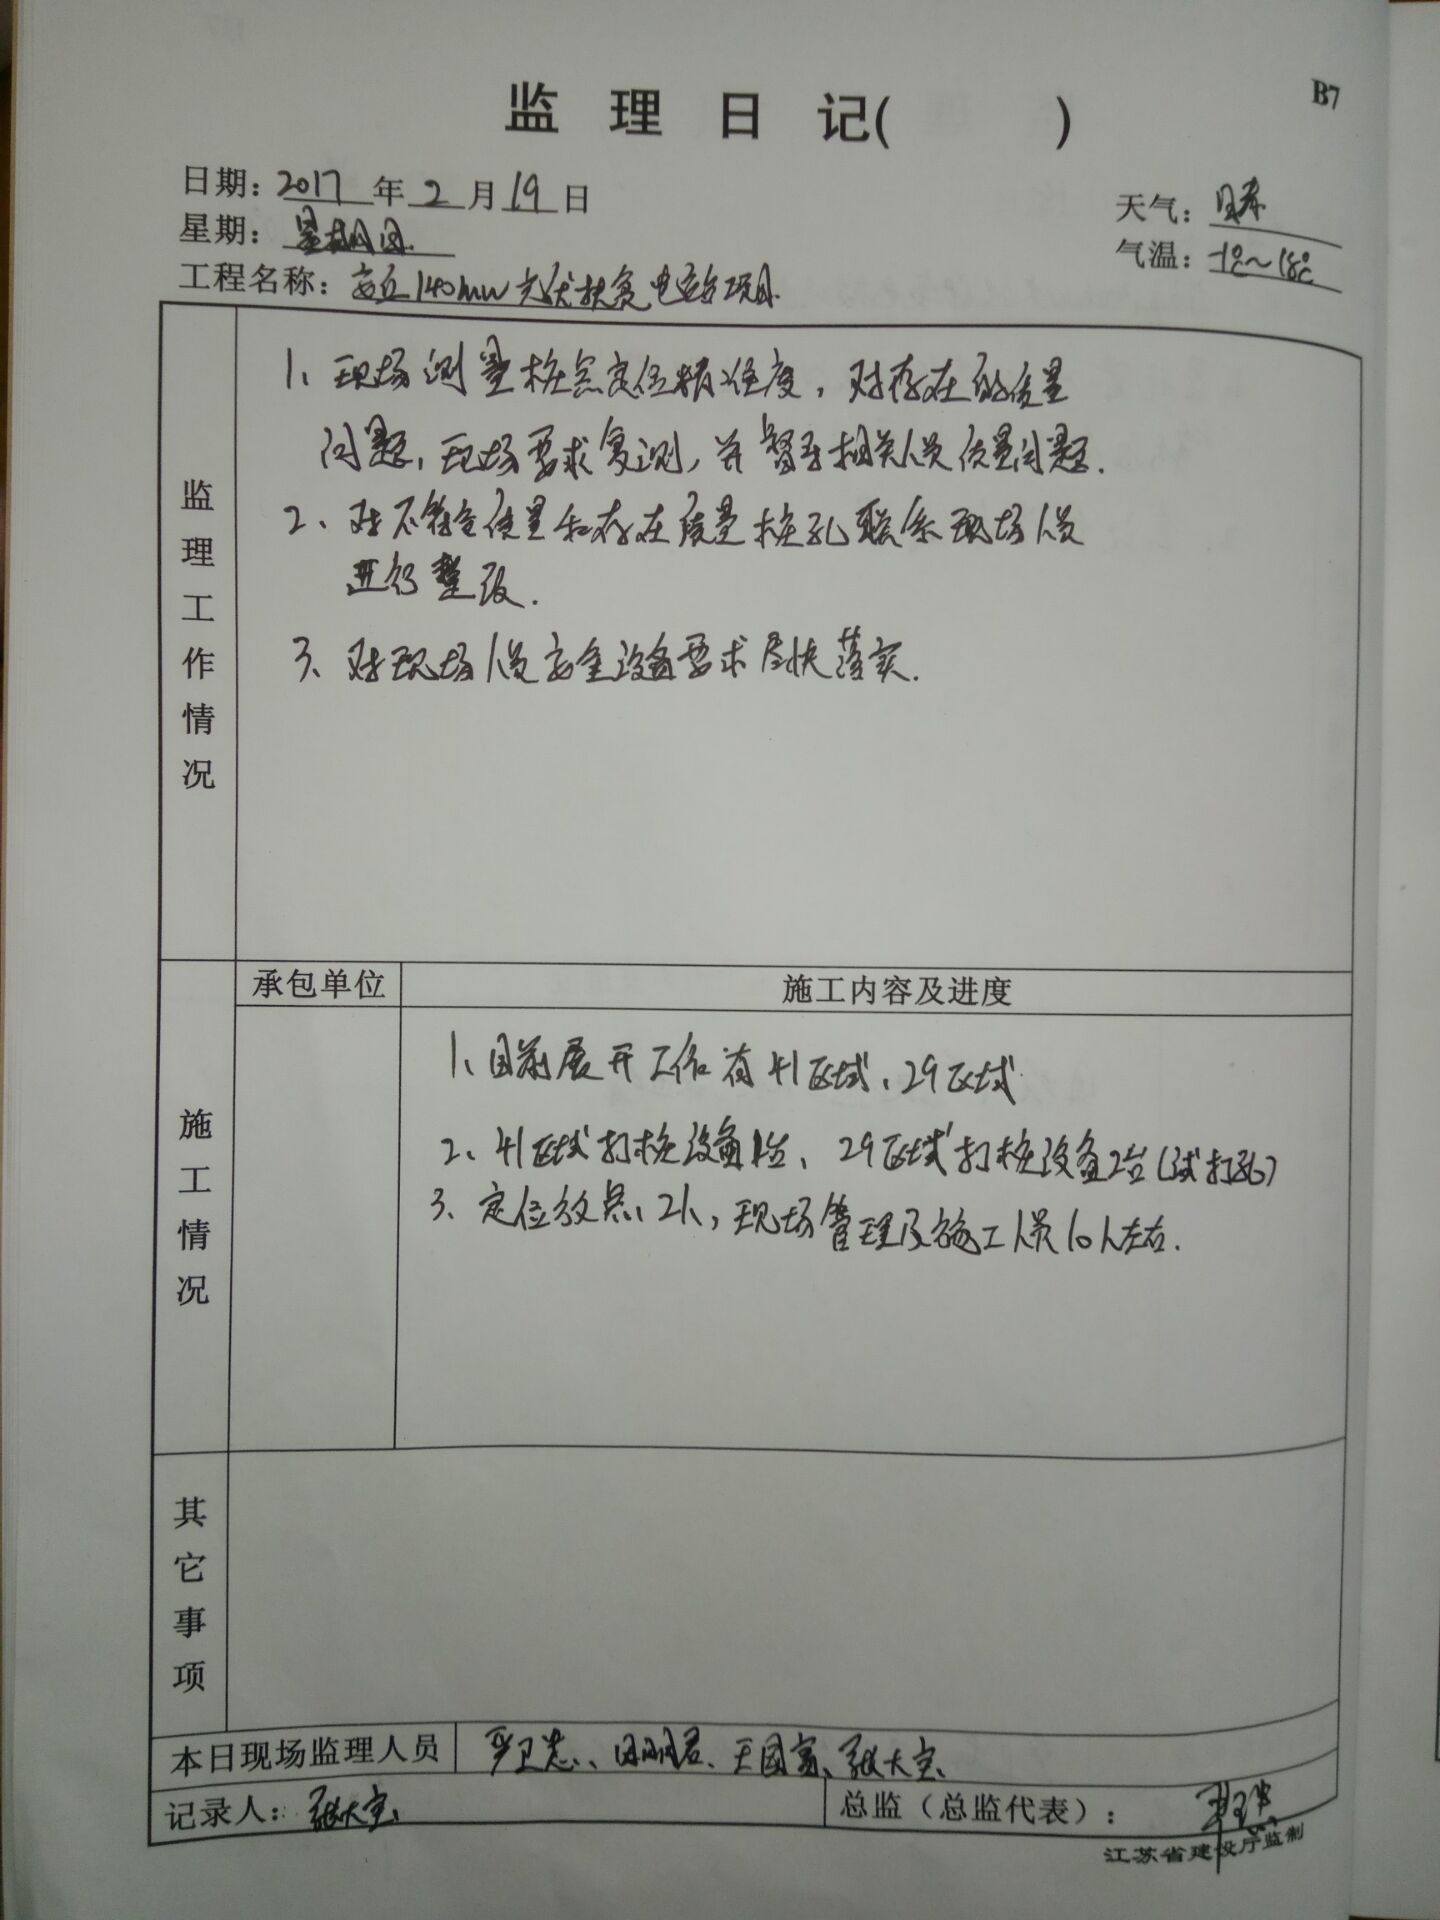 B7
监 理 日 记( )
日期: 2017 年 2 月 19 日
天气:
星期: 星期日
气温: -1℃~18℃
工程名称: 安丘140MW光伏扶贫电站项目
监理工作情况
1、现场测量桩点定位精准度,对存在的质量
问题,现场要求复测,并督导相关人员质量问题.
2、对不符合质量和存在质量桩孔联系现场人员
进行整改.
3、对现场人员安全设备要求尽快落实.
承包单位
施工内容及进度
施工情况
1、目前展开工作有41区域、29区域
2、41区域打桩设备1台、29区域打桩设备2台(试打孔)
3、定位放点、2人,现场管理及施工人员10人左右.
其它事项
本日现场监理人员 严卫志、田明君、王国富、张大宝
记录人: 张大宝
总监(总监代表):
江苏省建设厅监制